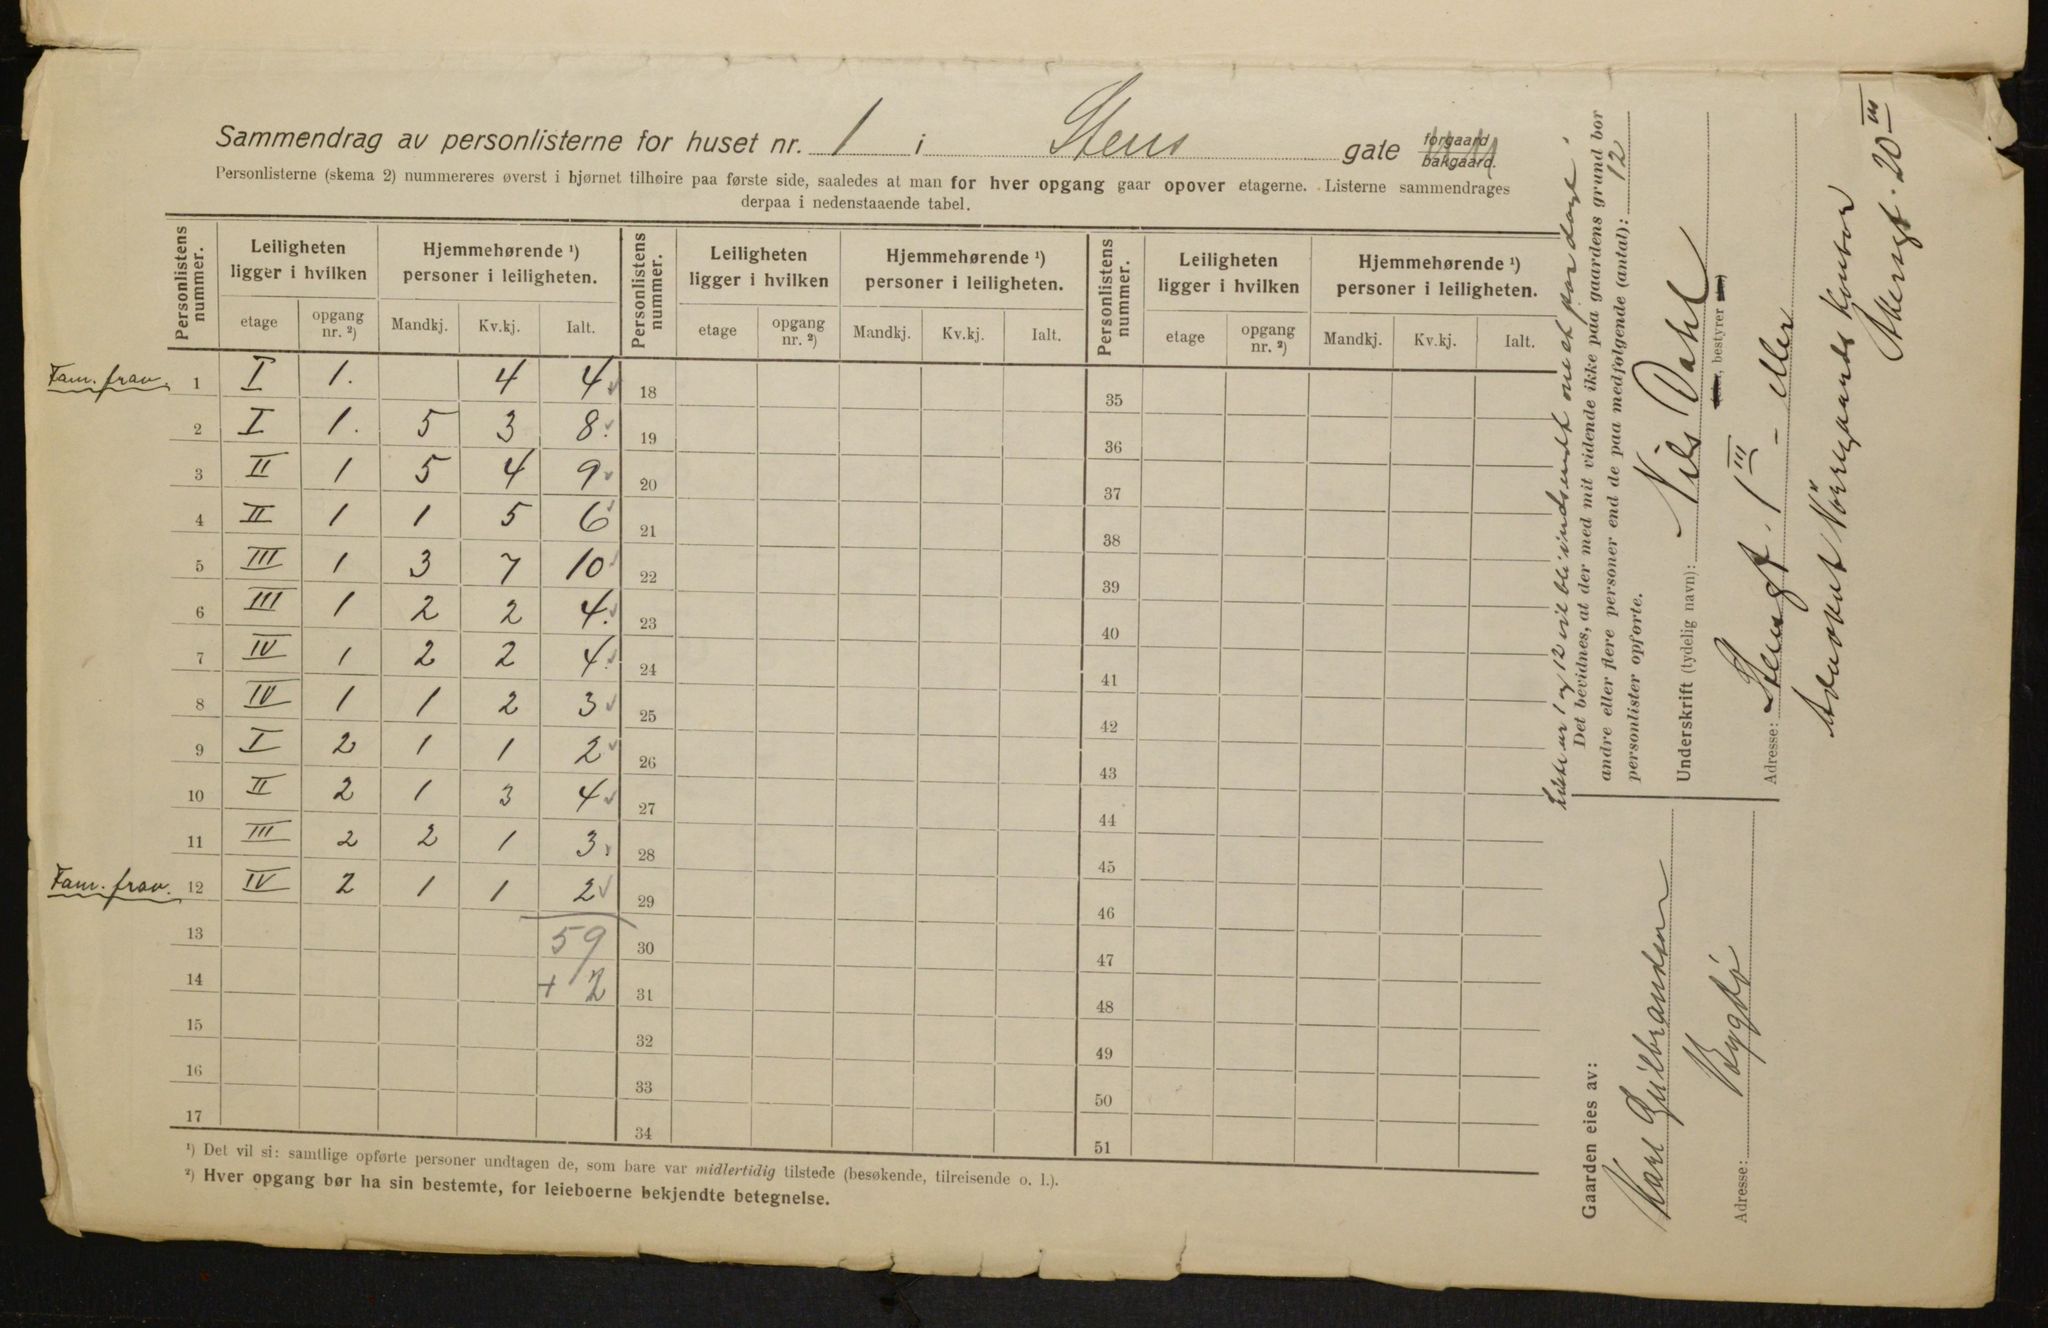 Sammendrag av personlisterne for huset nr. 1 i Stens gate forgaard bakgaard.
Personlisterne (skema 2) nummereres øverst i hjørnet tilhøire paa første side, saaledes at man for hver opgang gaar opover etagerne. Listerne sammendrages
derpaa i nedenstaaende tabel.
Personlistens nummer. Leiligheten ligger i hvilken Hjemmehørende ¹) personer i leiligheten. Personlistens nummer. Leiligheten ligger i hvilken Hjemmehørende ¹) personer i leiligheten. Personlistens nummer. Leiligheten ligger i hvilken Hjemmehørende ¹) personer i leiligheten.
etage opgang nr. ²) Mandkj. Kv.kj. Ialt. etage opgang nr. ²) Mandkj. Kv.kj. Ialt. etage opgang nr. ²) Mandkj. Kv.kj. Ialt.
Fam. frav. 1 I 1. 4 4 18 35
2 I 1. 5 3 8. 19 36
3 II 1 5 4 9 20 37
4 II 1 1 5 6 21 38
5 III 1 3 7 10 22 39
6 III 1 2 2 4. 23 40
7 IV 1 2 2 4. 24 41
8 IV 1 1 2 3 25 42
9 I 2 1 1 2 26 43
10 II 2 1 3 4 27 44
11 III 2 2 1 3. 28 45
Fam. frav. 12 IV 2 1 1 2 29 46
13 59 30 47
14 + 2 31 48
15 32 49
16 33 50
17 34 51
¹) Det vil si: samtlige opførte personer undtagen de, som bare var midlertidig tilstede (besøkende, tilreisende o. l.).
²) Hver opgang bør ha sin bestemte, for leieboerne bekjendte betegnelse.
1 og 12 vil bli indsendt om et par dage
Det bevidnes, at der med mit vidende ikke paa gaardens grund bor
andre eller flere personer end de paa medfølgende (antal): 12
personlister opførte.
Underskrift (tydelig navn): Nils Dahl
bestyrer
Adresse: Stensgt. 1 III – eller
Advokat Nørregaards Kontor
Akersgt. 20 III
Gaarden eies av:
Karl Gulbrandsen
Adresse: Bygdø